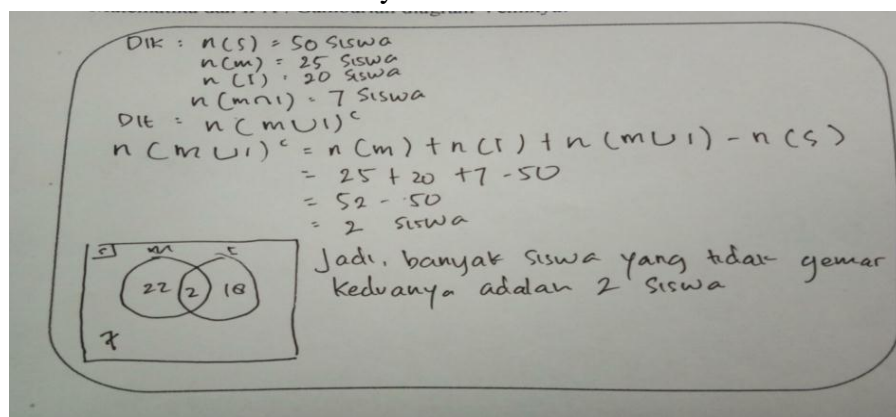 DIK : n(S) = 50 siswa
n(m) = 25 siswa
n(I) = 20 siswa
n(m∩I) = 7 siswa
DIt = n(m∪I)ᶜ
n(m∪I)ᶜ = n(m) + n(I) + n(m∪I) - n(S)
= 25 + 20 + 7 - 50
= 52 - 50
= 2 siswa
S m I
22 2 18
7
Jadi, banyak siswa yang tidak gemar
keduanya adalah 2 siswa